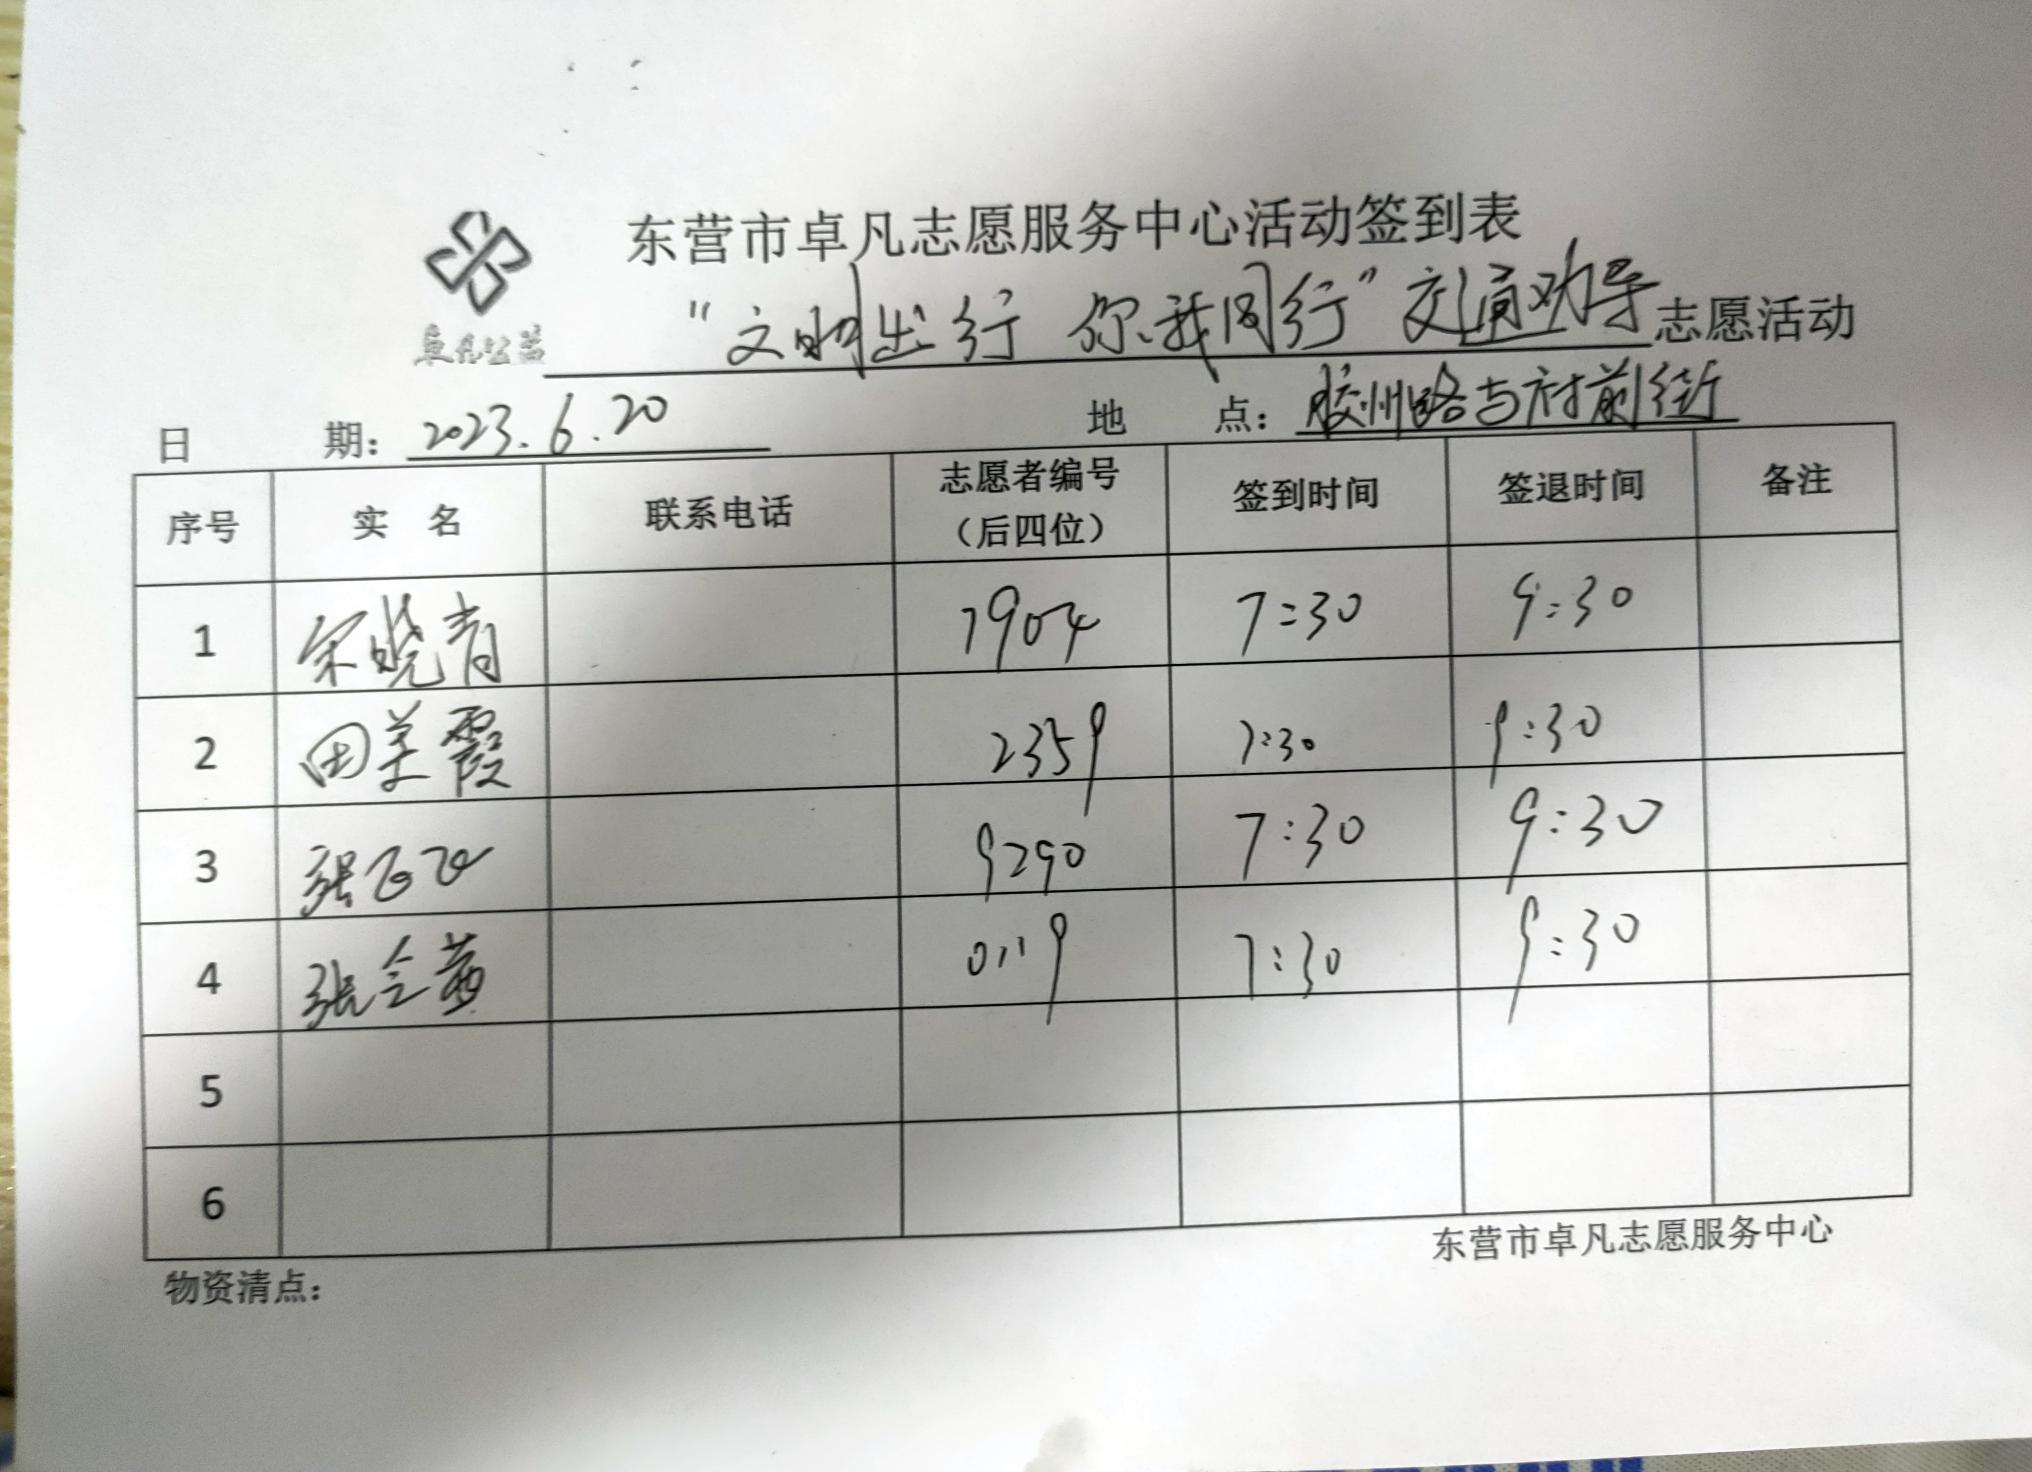 东营市卓凡志愿服务中心活动签到表
卓凡公益
“文明出行 你我同行”交通劝导志愿活动
日 期：2023.6.20 地 点：胶州路与府前街
序号 实 名 联系电话 志愿者编号（后四位） 签到时间 签退时间 备注
1 宋晓青 7904 7:30 9:30
2 田美霞 2359 7:30 9:30
3 张飞飞 9290 7:30 9:30
4 张会茜 0119 7:30 9:30
5
6
东营市卓凡志愿服务中心
物资清点：